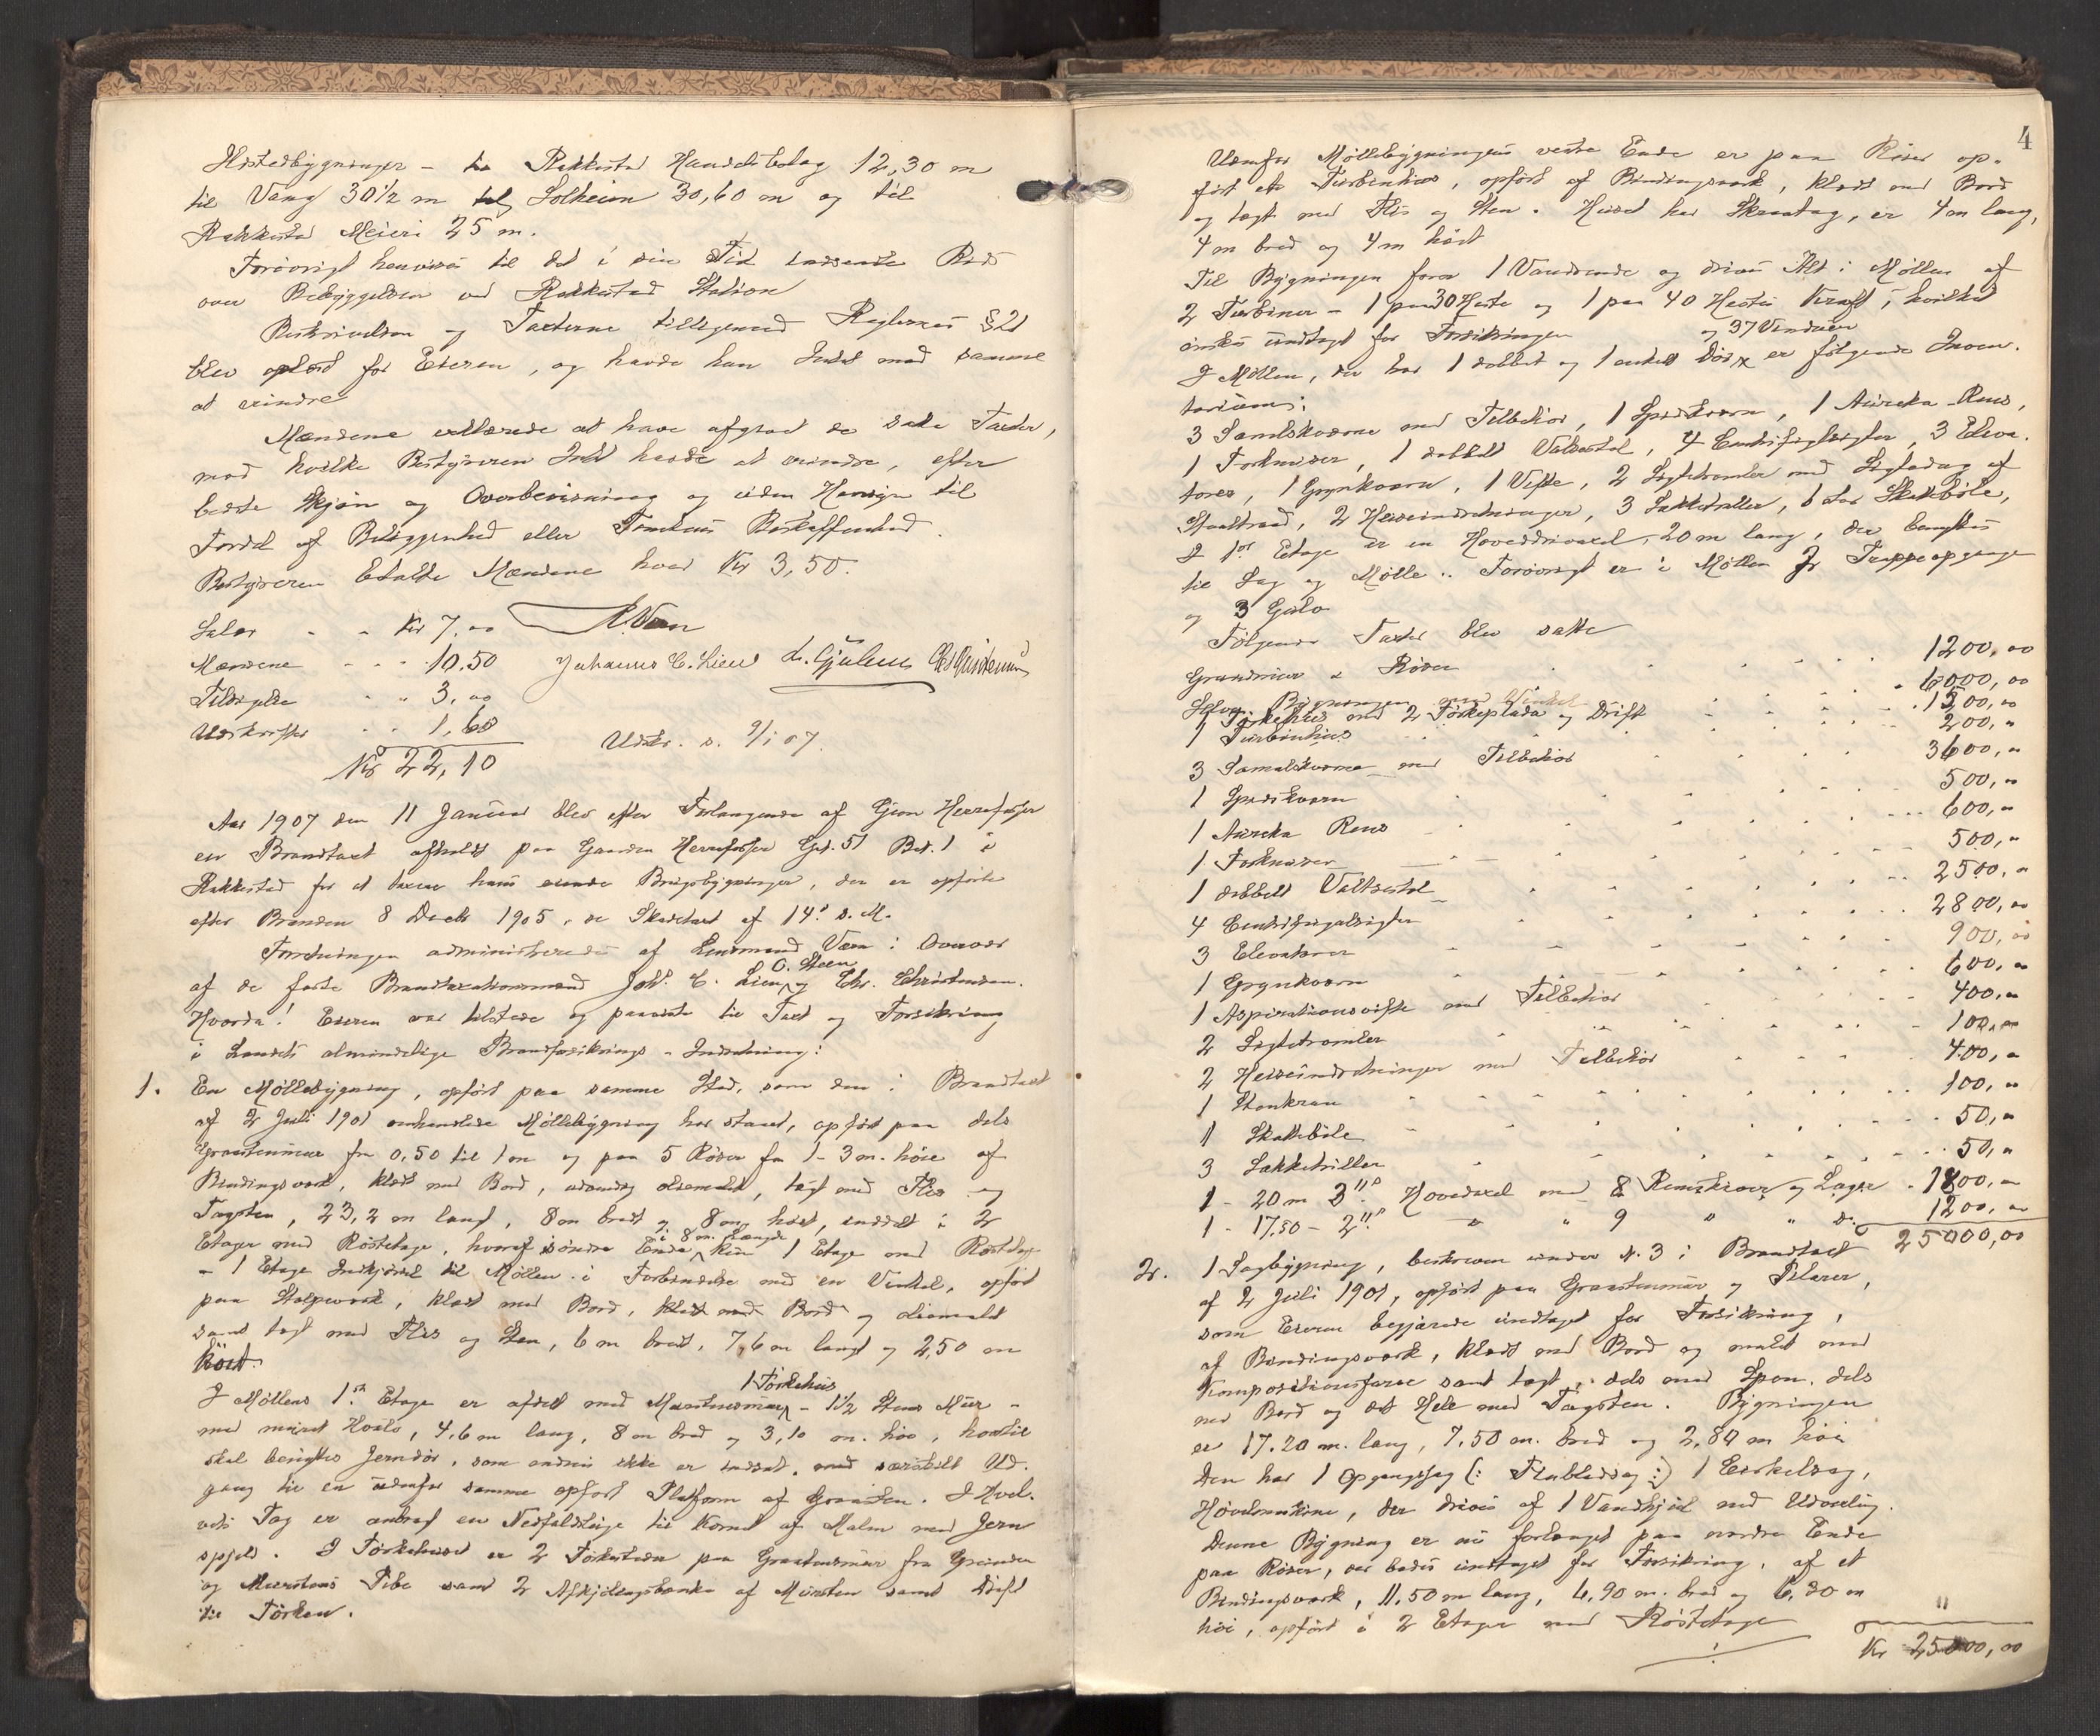 Histedbygninger - til Rakkestad Handelslag 12,30 m
til Vang 30 1/2 m til Solheim 30,60 m og til
Rakkestad Meieri 25 m.
Forøvrigt henvises til det i sin Tid indsendte Rids
over Bebyggelsen ved Rakkestad Station
Beskrivelsen og Taxterne tilligemed Reglernes § 21
blev oplæst for Eieren, og havde han Intet mod samme
at erindre
Mændene erklærede at have afgivet de satte Taxter,
mod hvilke Bestyreren Intet havde at erindre, efter
bedste Skjøn og Overbevisning og uden Hensyn til
Fordel af Beliggenhed eller Tomtens Beskaffenhed.
Bestyreren Etalte Mændene hver Kr 3,50.
Salær - - Kr 7.00
Mændene - - - 10.50 Johannes C. Lien
Tilsigelse - " 3.00
Udskrifter - - 1,60
Kr 22,10 Udskr. s. 9/1 07.
Aar 1907 den 11 Januar blev efter Forlangende af Gjers Herrefosser
en Brandtaxt afholdt paa Gaarden Herrefosser G.N. 51 Br.N. 1 i
Rakkestad for at taxere hans eiende Brugsbygninger, der er opførte
efter Branden 8 Decbr 1905, se Skadetaxt af 14. s. M.
Forretningen administreredes af Lensmand Veen i Overvær
af de faste Brandtaxationsmænd Joh. C. Lien, O. Steen og Chr. Christensen.
Hvorda! Eieren var tilstede og paaviste til Taxt og Forsikring
i Landets almindelige Brandforsikrings-Indretning:
1. En Møllebygning, opført paa samme Sted, som den i Brandtaxt
af 2 Juli 1901 omhandlede Møllebygning har staaet, opført paa dels
Graastensmur fra 0,50 til 1 m og paa 5 Røser fra 1-3 m. høie af
Bindingsværk, klædt med Bord, udvendig oliemalet, tægt med Flis og
Tagsten, 23,2 m langt, 8 m bredt og 8 m høit, inddelt i 2
Etager med Røstetage, hvoraf søndre Ende i 8 m. Længde kun 1 Etage med Røstetage
- 1 Etage Indkjørsel til Møllen i Forbindelse med en Vinkel, opført
paa Stolpeværk, klædt med Bord, klædt med Bord og oliemalet
samt tægt med Flis og Sten, 6 m bredt, 7,6 m langt og 2,50 m
høit.
I Møllens 1ste Etage er afdelt med Murstensmur 1 Tørkehus - 1 1/2 Stens Mur -
med muret Hvælv, 4,6 m lang, 8 m bred og 3,10 m. høi, hvortil
skal benyttes Jerndør, som endnu ikke er indsat, med særskilt Ud-
gang til en udenfor samme opført Platform af Graasten. I Hvæl-
vets Tag er anbragt en Nedfaldsluge til Kornet af Malm med Jern
spjeld. I Tørkehuset er 2 Tørkesteder paa Graastensmur fra Grunden
og Murstens Pibe samt 2 Afkjølingsbænke af Mursten samt Drift
til Tørken.
4
Udenfor Møllebygningens vestre Ende er paa Røser op-
ført et Turbinhus, opført af Bindingsværk, klædt med Bord
og tægt med Flis og Sten. Huset har Skraatag, er 4 m lang,
4 m bred og 4 m høit
Til Bygningen fører 1 Vandrende og drives Alt i Møllen af
2 Turbiner - 1 paa 30 Heste og 1 paa 40 Hestes Kraft, hvilket
ønskes undtaget for Forsikringen
I Møllen, der har 1 dobbelt og 1 enkelt Dør og 37 Vinduer er følgende Inven-
tarium:
3 Samelskværne med Tilbehør, 1 Spidskværn, 1 Aureka-Rens,
1 Forknuser, 1 dobbelt Valsestol, 4 Centrifugalsigter, 3 Eleva-
torer, 1 Grynkværn, 1 Vifte, 2 Sigtetromler med Sigtedug af
Staaltraad, 2 Heiseindretninger, 3 Sækketraller, 1 stor Skallebøle,
I 1ste Etage er en Hoveddrivaxel, 20 m lang, der benyttes
til Sag og Mølle. Forøvrigt er i Møllen 2 Trappeopgange
og 3 Gulve
Følgende Taxter blev satte
Grundmur & Røser 1200,00
Selve Bygningen med Vinkel 6000,00
1 Tørkehus med 2 Tørkeplader og Drift 1500,00
1 Turbinhus 200,"
3 Samelskværne med Tilbehør 3600,"
1 Spidskværn 500,"
1 Aureka Rens 600,"
1 Forknuser 500,"
1 dobbelt Valsestol 2500,"
4 Centrifugalsigter 2800,00
3 Elevatorer 900,00
1 Grynkværn 600,"
1 Aspirationsvifte med Tilbehør 400,"
2 Sigtetromler 100,00
2 Heiseindretninger med Tilbehør 400,"
1 Stenkran 100,"
1 Skallebøle 50,"
3 Sækketriller 50,"
1 - 20 m 3" Hovedaxel med 8 Remskiver og Lager 1800,"
1 - 17.50 - 2" " " 9 " " do. 1200,"
25000,00
2. 1 Sagbygning, beskreven under N. 3 i Brandtaxt
af 2 Juli 1901, opført paa Graastensmur og Pilarer,
som Eieren begjærede undtaget for Forsikring,
af Bindingsværk, klædt med Bord og malet med
Kompositionsfarve samt tægt, dels med Spon, dels
med Bord og det Hele med Tagsten. Bygningen
er 17.20 m. lang, 7,50 m. bred og 2,80 m høi
Den har 1 Opgangssag (: Flerbladsag :) 1 Cirkelsag,
Høvelmaskine, der drives af 1 Vandhjul med Udvexling.
Denne Bygning er nu forlænget paa nordre Ende
paa Røser, der bedes undtaget for Forsikring, af et
Bindingsværk, 11.50 m lang, 4,90 m. bred og 6,20 m
høi, opført i 2 Etager med Røstetage
Kr 25000,00